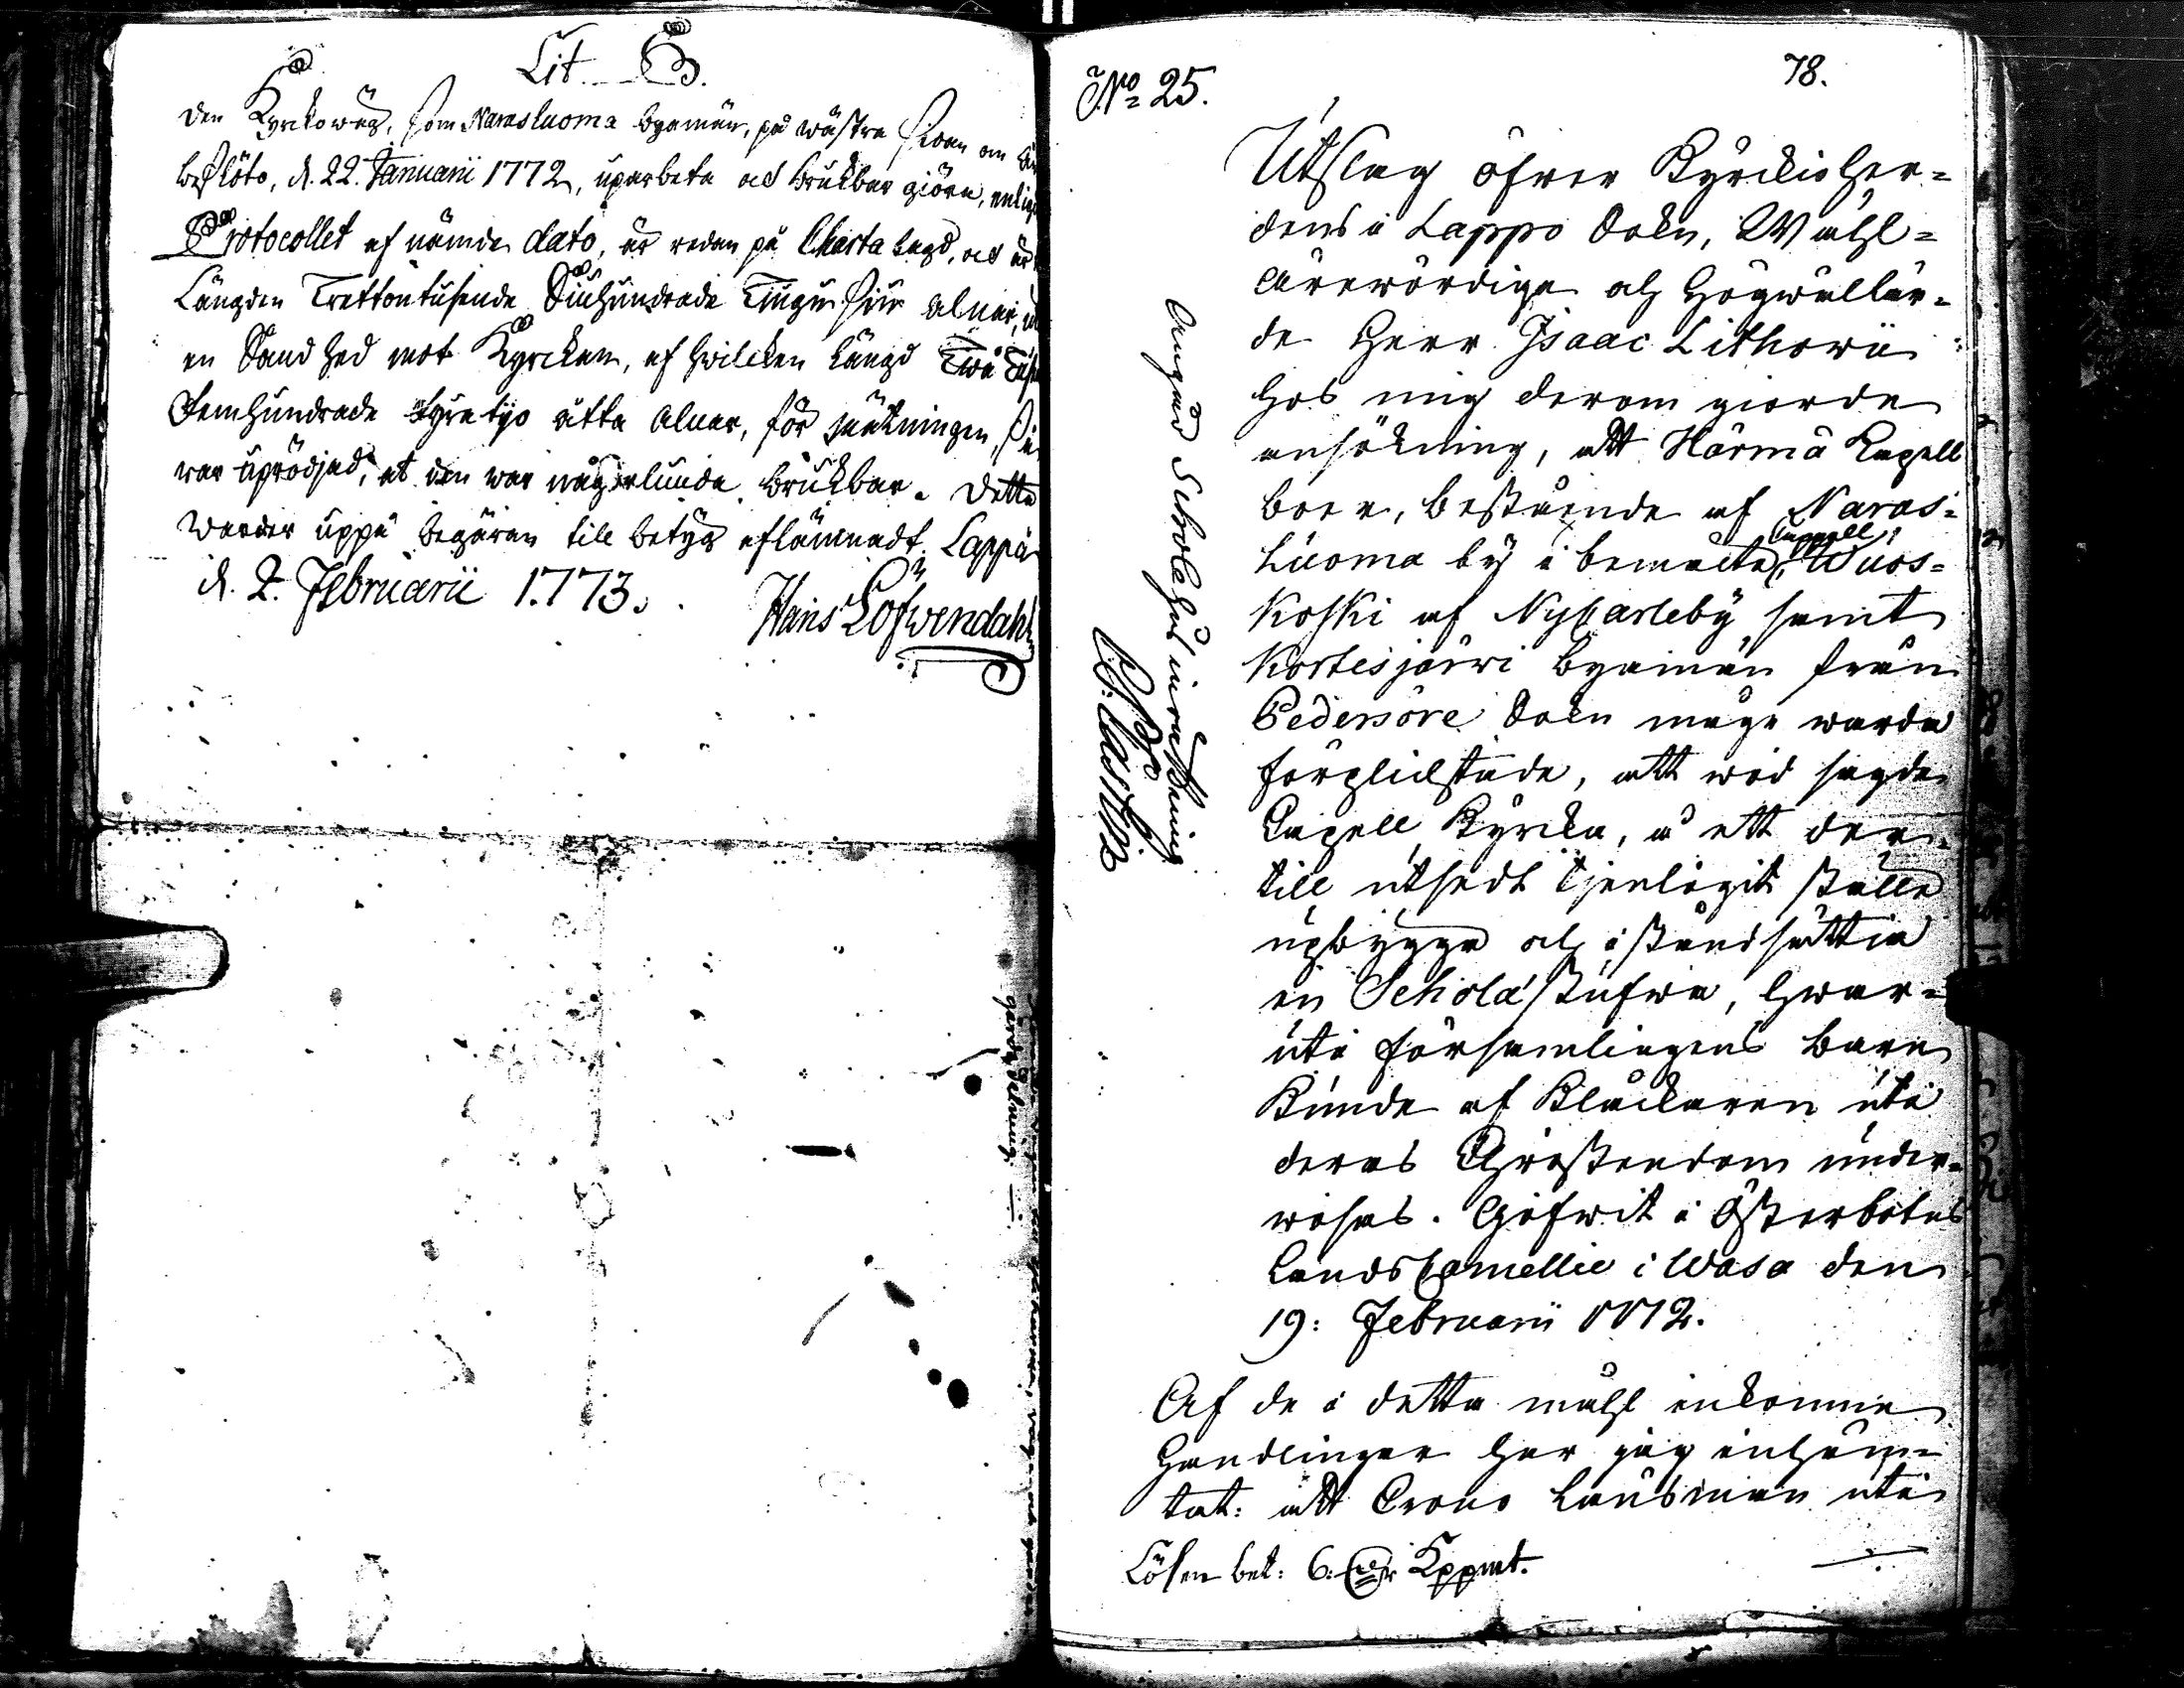 Lit. B.
Den Kyrckowäg, som Narasluoma byamän, på wästra sidan om
beslöto, d. 22. Januarii 1772, uparbeta och brukbar giöra, enligt
Protocollet af nämde dato, är redan på Charta lagd, och är
Längden Trettontusende Siuhundrade Tiugu siu alnar,
en Sand hed mot Kyrckan, af hwilcken längd Twå
Femhundrade fyratijo åtta alnar, för mätningen, så
war uprödjad, at den war någorlunda brukbar. Detta
warder uppå begäran till betyg aflämnadt. Lappå
d. 2. Februarii 1773.
Hans Löfwendahl
N:o 25.
78.
Utslag öfwer Kyrckioher=
dens i Lappo Sokn, Wähl=
ärewördige och Högwällär=
de Herr Isaac Lithovii
hos mig derom giorde
ansökning, att Härmä Capell
boer, bestående af Naras=
luoma by i bemälte Cappell, Wuos=
koski af Nycarleby samt
Kortesjärwi byamän från
Pedersöre Sokn måge warda
förplichtade, att wid sagde
Capell Kyrcka, å ett der=
till utsedt tjenligit ställe
upbygga och i ståndsättia
en Schola stufwa, hwar=
uti församlingens barn
kunde af Klåckaren uti
deras Christendom under=
wisas. Gifwit i Österbotns
Lands Cancellie i Wasa den
19: Februarii 1772.
Af de i detta måhl inkomne
Handlingar har jag inhäm=
tat: att Crono Länsman uti
Lösen bet: 6: Kppmt.
Angård Scholehus inrättning